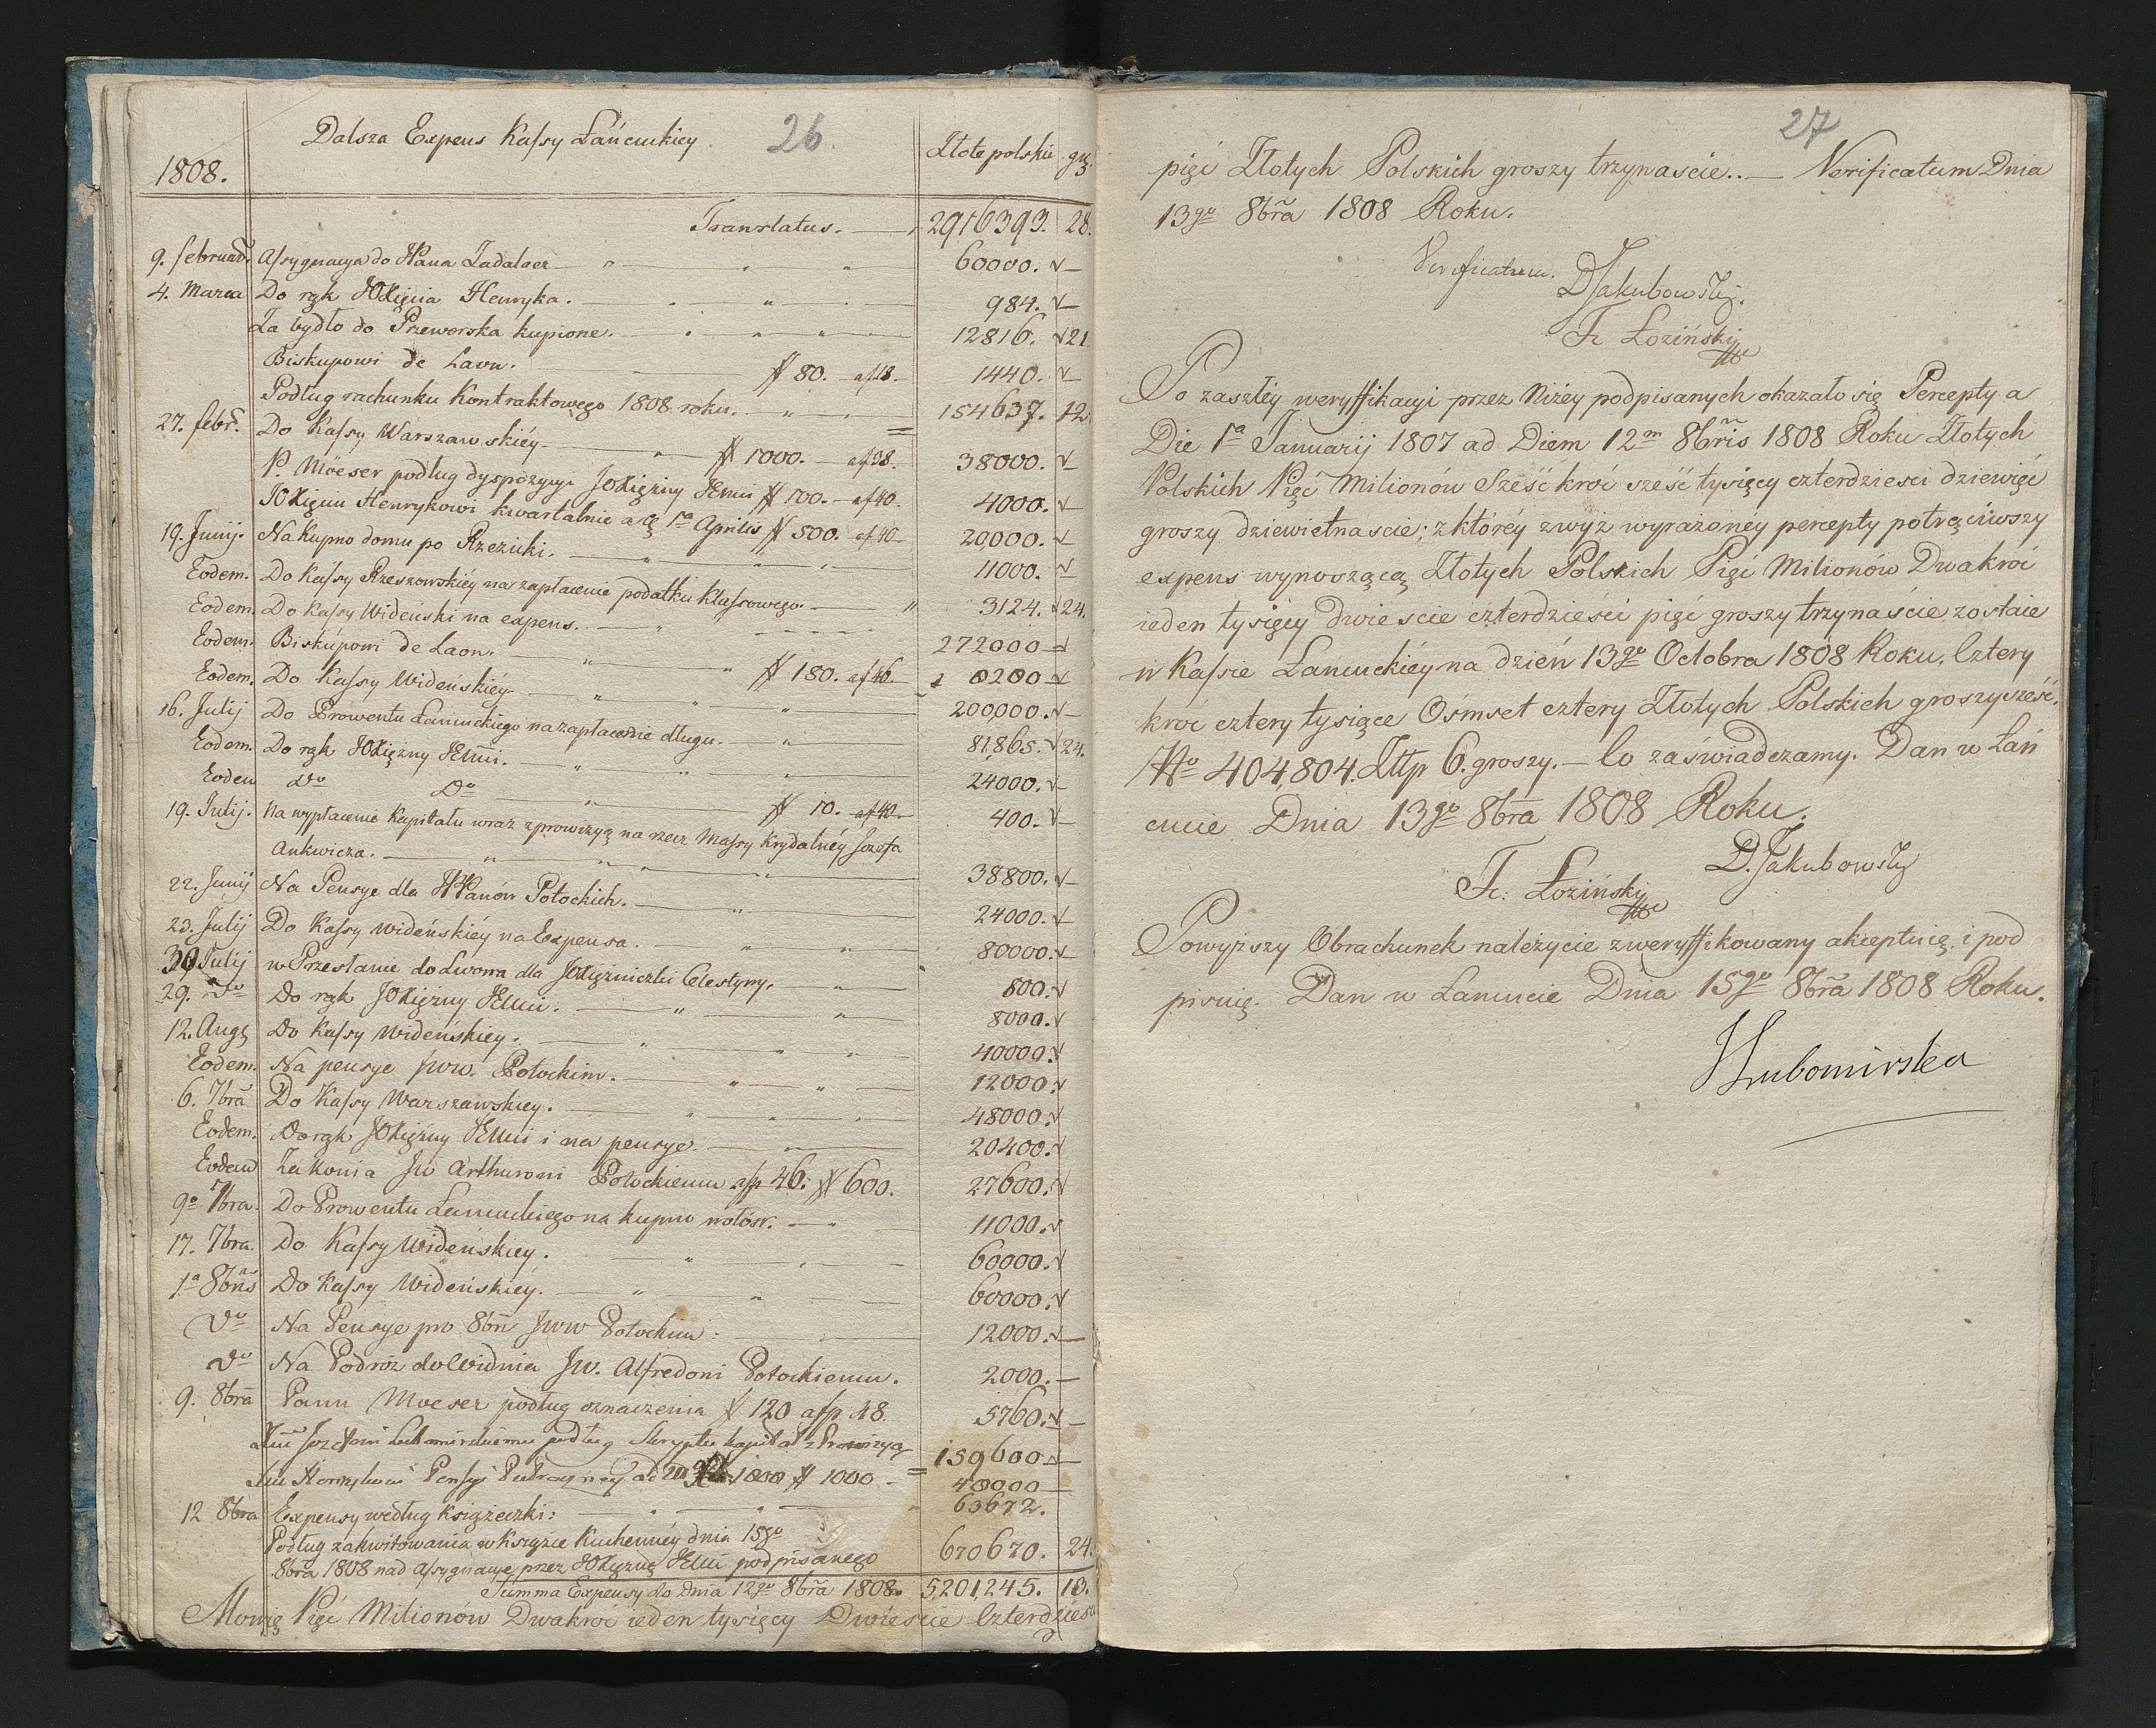 1808.
Dalsza Expens Kassy Łańcuckiey
26
Złote polskie gr.
Translatus. 2916393. 28.
9. februar. Assygnacya do Pana Zadalaer 60000.
4. Marca Do rąk JOXięcia Henryka. 984.
Za bydło do Przeworska kupione. 12816. 21
Biskupowi de Laon. # 80. af 18. 1440.
Podług rachunku Kontraktowego 1808. roku. 154637. 12
27. febr. Do Kassy Warszawskiéy. # 1000. af 38. 38000.
P. Möeser podług dyspozycyi JOXiężny JEMci # 100. af 40. 4000.
JOXięciu Henrykowi kwartalnie a 1a Aprilis # 500. af 40. 20,000.
19. Junij. Na Kupno domu po Rzezicki. 11000.
Eodem. Do Kassy Rzeszowskiéy na zapłacenie podatku Klassowego 3124. 24.
Eodem. Do Kassy Wideński na expens. 272000
Eodem. Biskupowi de Laon. # 180. af 46. 8280
Eodem. Do Kassy Wideńskiéy 200,000.
16. Julij Do Prowentu Łancuckiego na zapłacenie długu. 81,865. 24.
Eodem. Do rąk JOXiężny JEMci. 24000.
Eodem do do # 10. af 40. 400.
19. Julij. Na wypłacenie Kapitału wraz z prowizyą na rzecz Massy Krydalnéy Józefa
Ankwicza. 38800.
22. Junij Na Pensye dla JPPanów Potockich. 24000.
23. Julij Do Kassy Wideńskiéy na Expensa. 80000.
30 Julij w Przesłanie do Lwowa dla JOXiężniczki Celestyny. 800.
29. do Do rąk JOXiężny JEMci. 8000.
12. Aug Do Kassy Wideńskiey. 40000.
Eodem. Na pensye Jww. Potockim. 12000.
6. 7bra Do Kassy Warszawskiey. 48000.
Eodem. Do rąk JOXiężny JEMci i na pensye. 20400.
Eodem Za konia Jw Arthurowi Potockiemu afp 46: # 600. 27600.
9o 7bra. Do Prowentu Łancuckiego na kupno wołów. 11000.
17. 7bra. Do Kassy Wideńskiey. 60000.
1a 8bris Do Kassy Wideńskiéy. 60000.
do Na Pensye pro 8bri Jww Potockim: 12000.
do Na Podróż do Widnia Jw. Alfredowi Potockiemu. 2000.
9. 8bra Panu Moeser podług oznaczenia # 120 afp 48. 5760.
Xciu Józefowi Lubomirskiemu podług Skryptu kapitał z Prowizyą 159600
Xciu Henrykowi Pensyi # 1000 40000
12 8bra Expensy według książeczki: 63672.
Podług zakwitowania w Xsiążce Kuchennéy dnia 15go
8bra 1808 nad assygnacye przez JOXiężnę JEMci podpisanego 670670. 24.
Summa Expensy do dnia 12go 8bra 1808. 5,201,245. 13.
Mowię Pięć Milionów Dwakroć ieden tysięcy Dwieście Czterdzieści
27
pięć Złotych Polskich groszy trzynascie.. — Verificatum Dnia
13go 8bra 1808 Roku.
Verificatum. DJakubowski.
Fr. Łoziński
Po zaszłéy weryffikacyi przez Niżey podpisanych okazało się Percepty a
Die 1a Januarij 1807 ad Diem 12m 8bris 1808 Roku Złotych
Polskich Pięć Milionów Sześć kroć sześć tysięcy czterdziesci dziewięć
groszy dziewietnascie; z któréy zwyż wyrażoney percepty potrąciwszy
expens wynoszącą Złotych Polskich Pięć Milionów Dwakroć
ieden tysięcy dwiescie czterdzieści pięć groszy trzynaście, zostaie
w Kassie Łancuckiéy na dzień 13go Octobra 1808 Roku, Cztery
kroć cztery tysiące Ośmset cztery Złotych Polskich groszy sześć.
No 404,804. Złtp 6. groszy. — Co zaświadczamy. Dan w Łań
cucie Dnia 13go 8bra 1808 Roku.
D. Jakubowski
Fr. Łoziński
Powyższy Obrachunek należycie zweryffikowany akceptuię i pod
pisuię. Dan w Łancucie Dnia 15go 8bra 1808 Roku.
Lubomirska